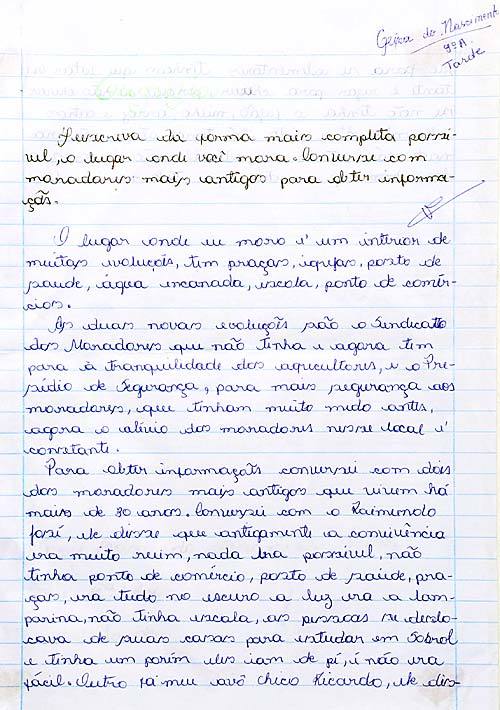 Geisa do Nascimento
9º A
Tarde
Descreva da forma mais completa possi-
vel, o lugar onde você mora. Converse com
moradores mais antigos para obter informa-
ção.
O lugar onde eu moro é um interior de
muitas evoluções, tem praças, igrejas, posto de
saude, água encanada, escola, ponto de comér-
cios.
As duas novas evoluções são o Sindicatto
dos Moradores que não tinha e agora tem
para à tranquilidade dos agricultores, e o Pre-
sídio de Segurança, para mais segurança aos
moradores, que tinham muito medo antes,
agora o alívio dos moradores nesse local é
constante.
Para obter informações conversei com dois
dos moradores mais antigos que vivem há
mais de 80 anos. Conversei com o Raimundo
José, ele disse que antigamente a convivência
era muito ruim, nada era possivel, não
tinha ponto de comércio, posto de saúde, pra-
ças, era tudo no escuro a luz era a lam-
parina, não tinha escola, as pessoas se deslo-
cava de suas casas para estudar em Sobral
e tinha um porém eles iam de pé, i não era
fácil. Outro já meu avô Chico Ricardo, ele dis-